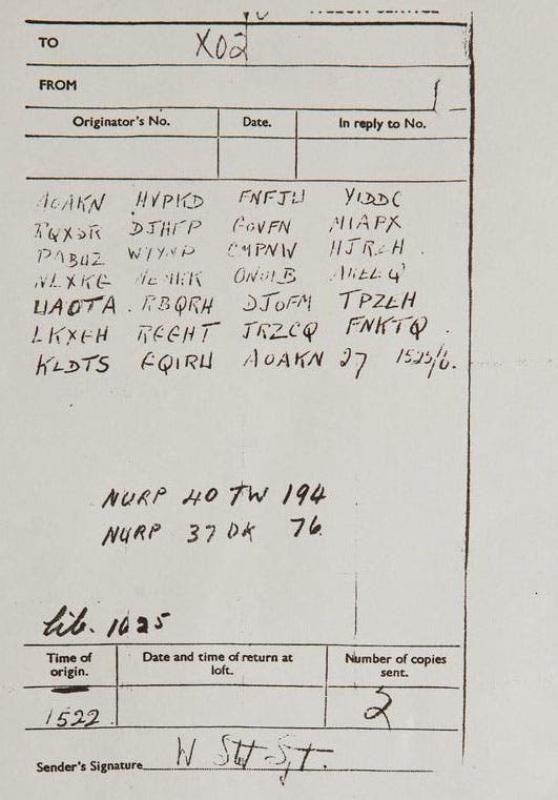 TO X02
FROM 1
Originator's No. Date. In reply to No.
AOAKN HVPKD FNFJU YIDDC
RQXSR DJHFP GOVFN MIAPX
PABUZ WYYNP CMPNW HJRZH
NLXKG MEMKK ONOIB AKEEQ
UAOTA RBQRH DJOFM TPZEH
LKXGH RGGHT JRZCQ FNKTQ
KLDTS GQIRU AOAKN 27 1525/6.
NURP 40 TW 194
NURP 37 DK 76
lib. 1625
Time of origin. Date and time of return at loft. Number of copies sent.
1522 2
Sender's Signature W Stot Sjt.